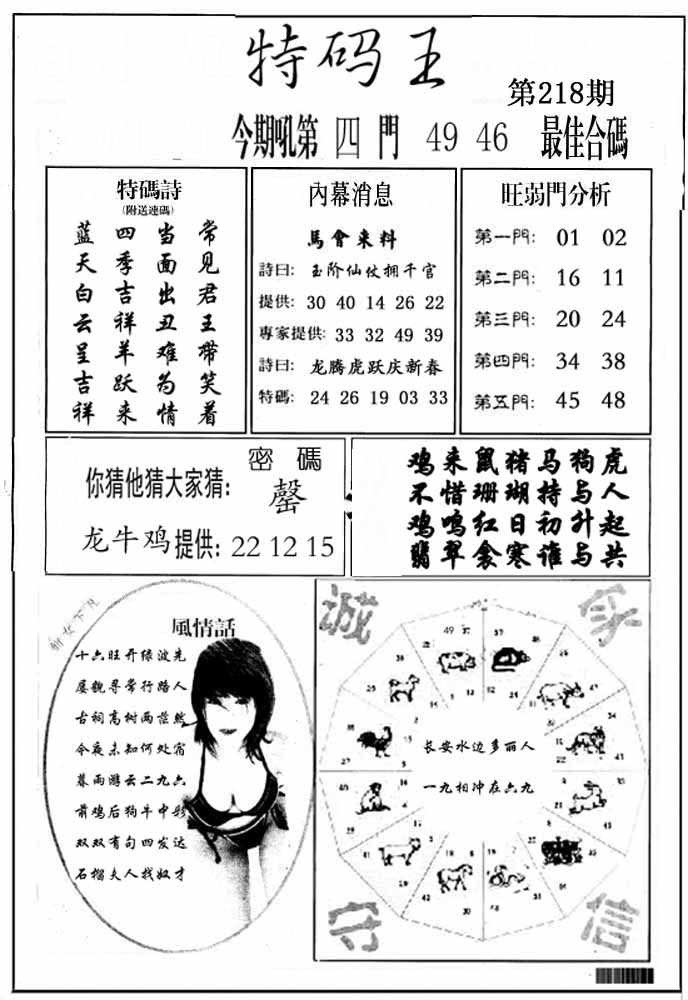 特码王
第218期
今期吼第 四 門 49 46 最佳合碼
特碼詩
(附送連碼)
常见君王带笑着
当面出丑难为情
四季吉祥羊跃来
蓝天白云呈吉祥
內幕消息
馬會来料
詩曰: 玉阶仙仗拥千官
提供: 30 40 14 26 22
專家提供: 33 32 49 39
詩曰: 龙腾虎跃庆新春
特碼: 24 26 19 03 33
旺弱門分析
第一門: 01 02
第二門: 16 11
第三門: 20 24
第四門: 34 38
第五門: 45 48
密碼
你猜他猜大家猜: 罄
龙牛鸡提供: 22 12 15
鸡来鼠猪马狗虎
不惜珊瑚持与人
鸡鸣红日初升起
翡翠衾寒谁与共
下凡
風情話
十六旺开绿波先
屡貌寻常行路人
古祠高树两茫然
今夜未知何处宿
暮雨游云二九六
前鸡后狗牛中彩
双双有句四发达
石榴夫人找奴才
诚
守
信
长安水边多丽人
一九相冲在六九
49 37